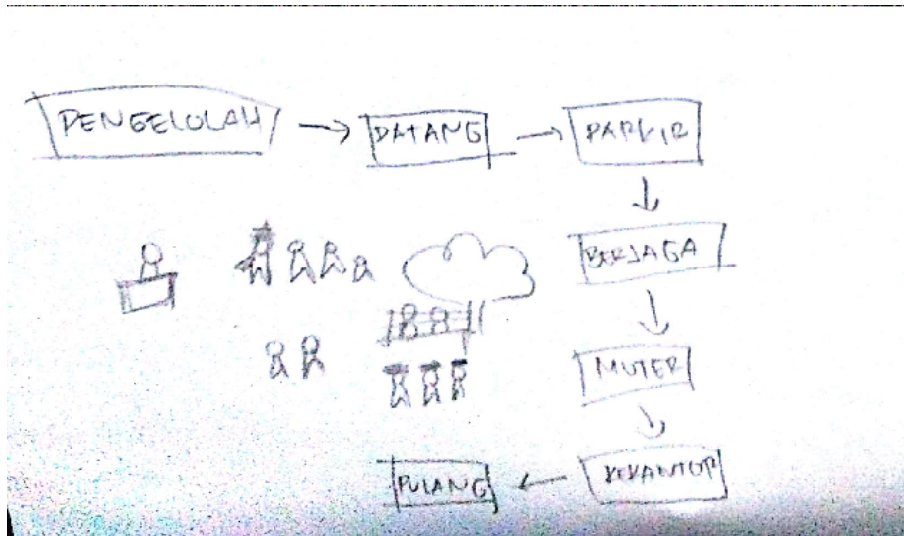 PENGELOLAH
DATANG
PARKIR
BERJAGA
MUTER
KEKANTOR
PULANG